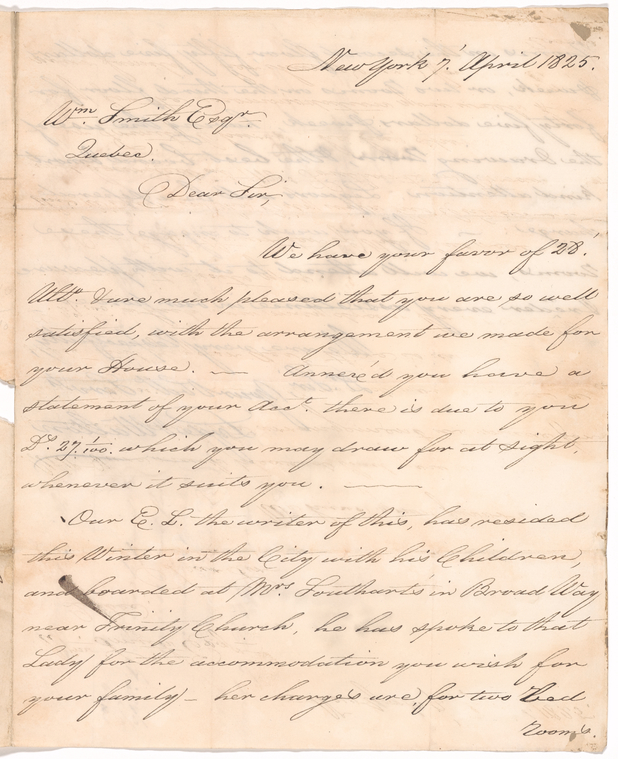 New York 7' April 1825.
Wm. Smith Esqr.
Quebec.
Dear Sir,
We have your favor of 28'
Ulto. & are much pleased that you are so well
satisfied, with the arrangement we made for
your House. — Annex'd you have a
statement of your Acct. there is due to you
Ds. 27. 1/100. which you may draw for at sight,
whenever it suits you. —
Our E. L. the writer of this, has resided
this Winter in the City with his Children,
and boarded at Mrs Southart's in Broad Way
near Trinity Church, he has spoke to that
Lady for the accommodation you wish for
your family – her charges are, for two Bed
rooms.